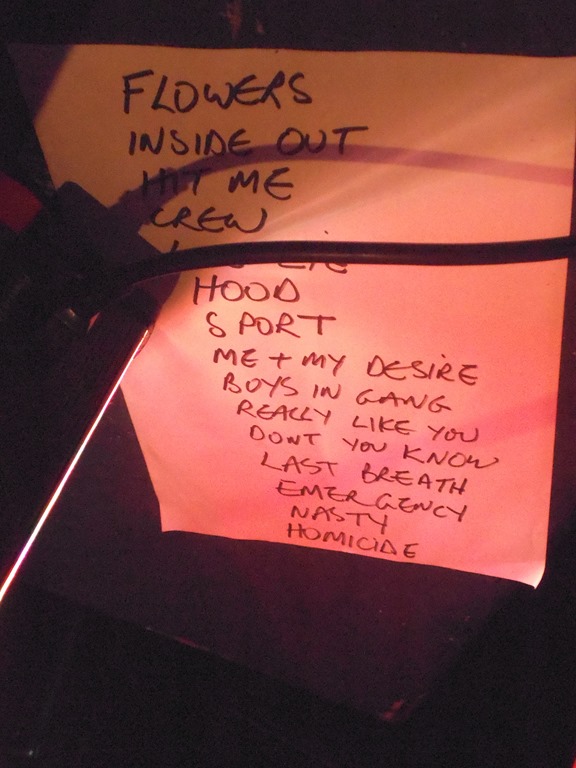 FLOWERS
INSIDE OUT
HIT ME
CREW
HOOD
SPORT
ME + MY DESIRE
BOYS IN GANG
REALLY LIKE YOU
DONT YOU KNOW
LAST BREATH
EMERGENCY
NASTY
HOMICIDE